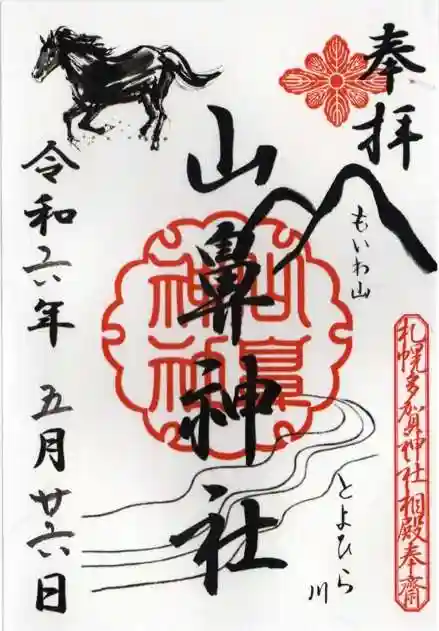 奉拝
もいわ山
札幌多賀神社相殿奉齋
とよひら川
山鼻神社
山鼻神社
令和六年 五月廿六日